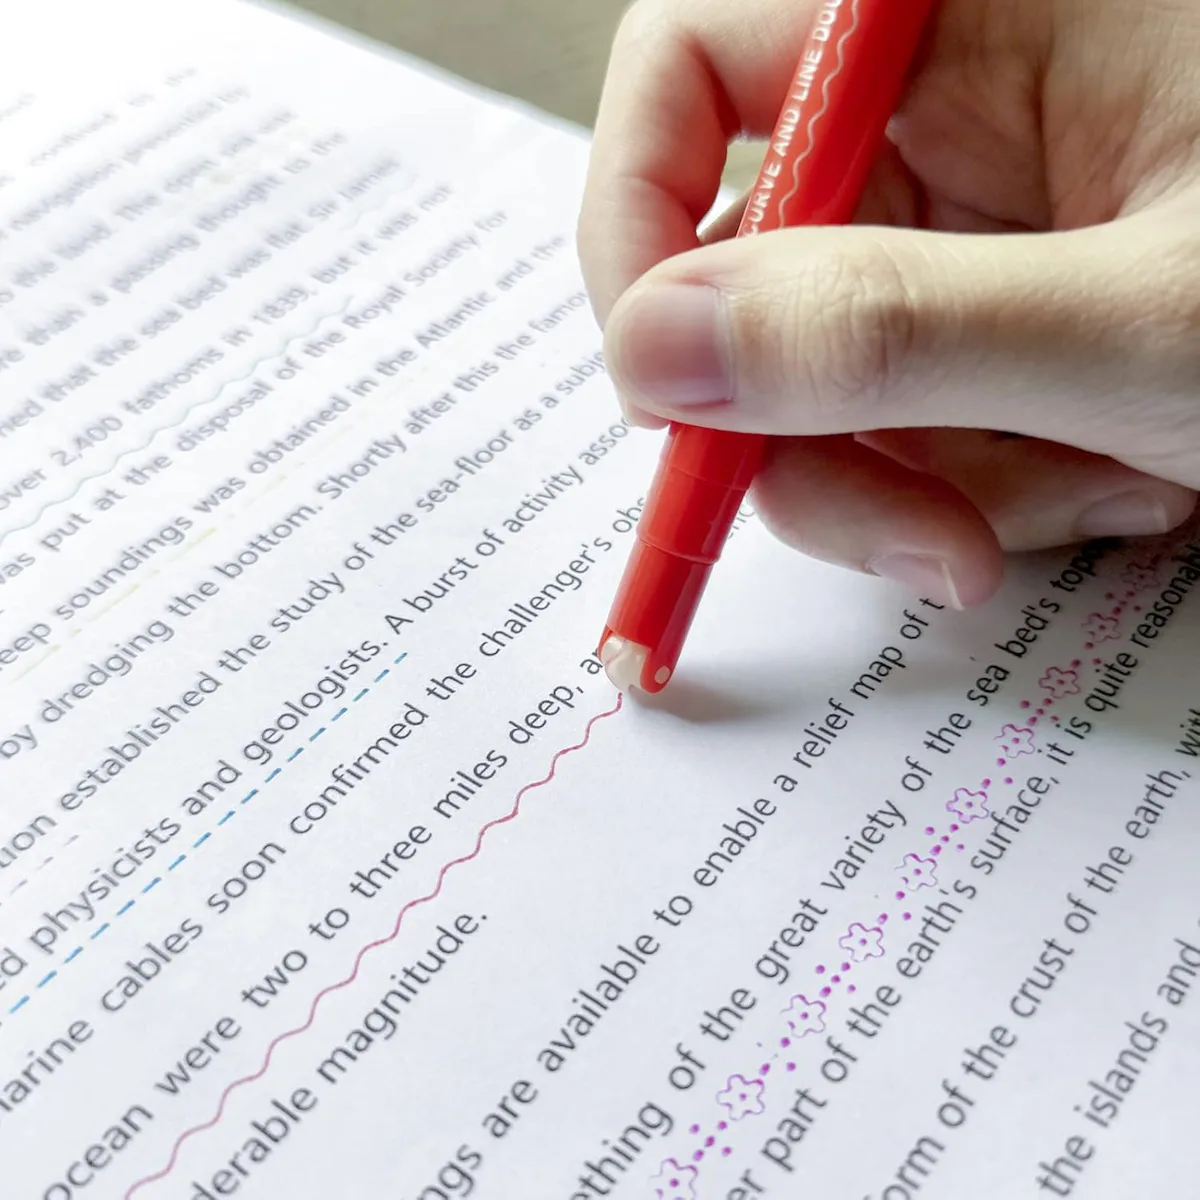 confined to the
navigation prevented by
to the land. The open sea was
than a passing thought to the
ned that the sea bed was flat. Sir James
over 2,400 fathoms in 1839, but it was not
was put at the disposal of the Royal Society for
deep soundings was obtained in the Atlantic and the
by dredging the bottom. Shortly after this the famou
tion established the study of the sea-floor as a subje
ed physicists and geologists. A burst of activity asso
marine cables soon confirmed the challenger's obs
ocean were two to three miles deep, a
derable magnitude.
ngs are available to enable a relief map of t
ething of the great variety of the sea bed's topo
er part of the earth's surface, it is quite reasonab
orm of the crust of the earth, wit
the islands and
CURVE AND LINE DOU